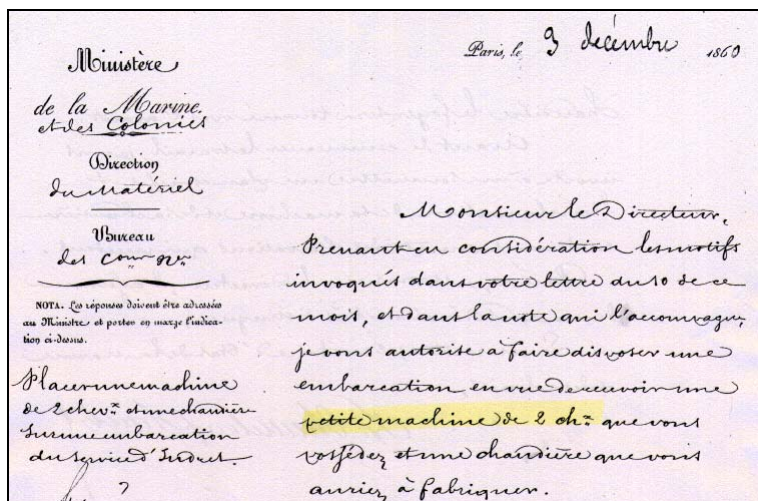 Ministère
de la Marine.
et des Colonies
Direction
du Matériel
Bureau
des Conons Nles
NOTA. Les réponses doivent être adressées
au Ministre, et porter en marge l'indica-
tion ci-dessus.
Placer une machine
de 2 chevx et une chaudière
sur une embarcation
du Service d'Indret.
Paris, le 3 décembre 1860
Monsieur le Directeur,
Prenant en considération les motifs
invoqués dans votre lettre du 10 de ce
mois, et dans la note qui l'accompagne,
je vous autorise à faire disposer une
embarcation, en vue de recevoir une
petite machine de 2 chx que vous
possédez et une chaudière que vous
auriez à fabriquer.